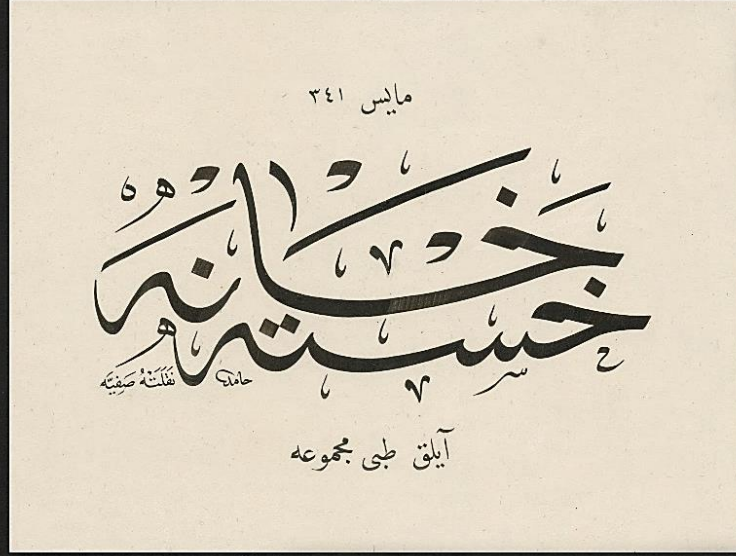 مايس ٣٤١
خسته خانه
حامد
نقلته صفيه
آيلق طبى مجموعه